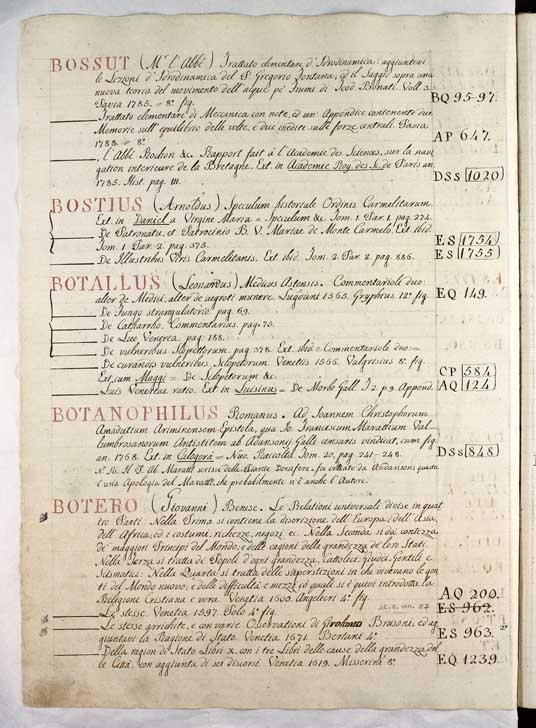 BOSSUT (Mr. l'Abbé) Trattato elementare d'Idrodinamica: aggiuntevi
le Lezioni d'Idrodinamica del P. Gregorio Fontana, ed il Saggio sopra una
nuova teoria del movimento dell'acque pe' fiumi di Teod. Bonati. Voll. 3.
Pavia 1785. = 8°. fig. BQ 95-97.
Trattato elementare di Meccanica con note, ed un' Appendice contenente due
Memorie sull' equilibrio delle volte, e due inedite sulle forze centrali. Pavia
1788. = 8°. AP 647.
l'Abbé Rochon &c. Rapport fait à l'Academie des Sciences, sur la navi
gation interieure de la Bretagne. Ext. in Academie Roy. des Sc. de Paris an.
1785. Hist. pag. 111. DSS 1020
BOSTIUS (Arnoldus) Speculum historiale Ordinis Carmelitarum.
Ext. in Daniel a Virgine Maria = Speculum &c. Tom. 1. Par. 1. pag. 274.
De Patronatu, et Patrocinio B. V. Mariae de Monte Carmelo. Ext. ibid.
Tom. 1. Par. 2. pag. 375. ES 1754
De Illustribus Viris Carmelitanis. Ext. ibid. Tom. 2. Par. 2. pag. 886. ES 1755
BOTALLUS (Leonardus) Medicus Astensis. Commentarioli duo:
alter de Medici, alter de aegroti munere. Lugduni 1565. Gryphius 12° fig. EQ 149.
De fungo strangulatorio. pag. 69.
De Catharrho. Commentarius. pag. 75.
De Lue Venerea. pag. 188.
De vulneribus Sclopettorum. pag. 378. Ext. ibid = Commentarioli duo =
De curandis vulneribus Sclopetorum Venetiis 1565. Valgrisius 8°. fig.
Ext. cum Maggi = De Sclopetorum &c. CP 584
Luis Venereae ratio. Ext. in Luisinus = De Morbo Gall. T. 2. p. 9. Append. AQ 124
BOTANOPHILUS Romanus. Ad Joannem Christophorum
Amadutium Ariminensem Epistola, qua Jo. Franciscum Marattium Val
lumbrosanorum Antistitem ab Adansonij Galli censuris vindicat, cum fig.
an. 1768. Ext. in Calogerà = Nuo. Raccolta Tom. 20. pag. 241-248. DSS 848
N.B. Il P. Ab. Maratti scrisse delle Piante Dorsifere: fu criticato da Andanson: questa
è una Apologia del Maratti, che probabilmente n'è anche l'Autore.
BOTERO (Giovanni) Benese. Le Relationi universali divise in quat
tro Parti. Nella Prima si contiene la discrizione dell'Europa, dell'Asia,
dell'Africa, ed i costumi, richezze, negozj &c. Nella Seconda si dà contezza
de' maggiori Principi del Mondo, e delle cagioni della grandezza de' loro Stati.
Nella Terza si tratta de' Popoli d'ogni grandezza, Cattolici, Giudei, Gentili, e
Scismatici. Nella Quarta si tratta delle superstizioni in che vivevano le gen
ti del Mondo nuovo, e delle difficultà, e mezzi co' quali si è quivi introdotta la
Religione Cristiana e vera. Venetia 1600. Angelieri 4°. fig. AQ 200.
Le stesse. Venetia 1597. 4°. fig. ES 962.
Le stesse arrichite, e con varie Osservationi di Girolamo Brusoni, ed ag
giuntavi la Ragione di Stato. Venetia 1671. Bertani 4°. ES 963.
Della region di Stato Libri X. con i tre Libri delle cause della grandezza del
le Città, con aggiunta di sei discorsi. Venetia 1619. Misserini 8°. EQ 1239.